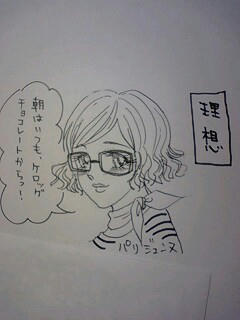 理想
朝はいつも、ケロッグ
チョコレートからっ!
パリジェンヌ